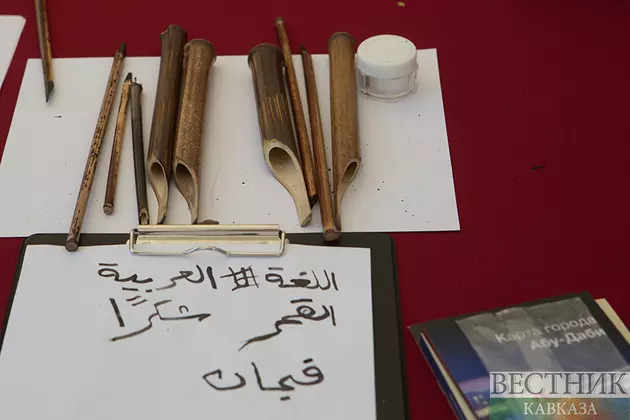 اللغة # العربية
القمر شكرًا
فيمان
Карта города
Абу-Даби
ВЕСТНИК
КАВКАЗА